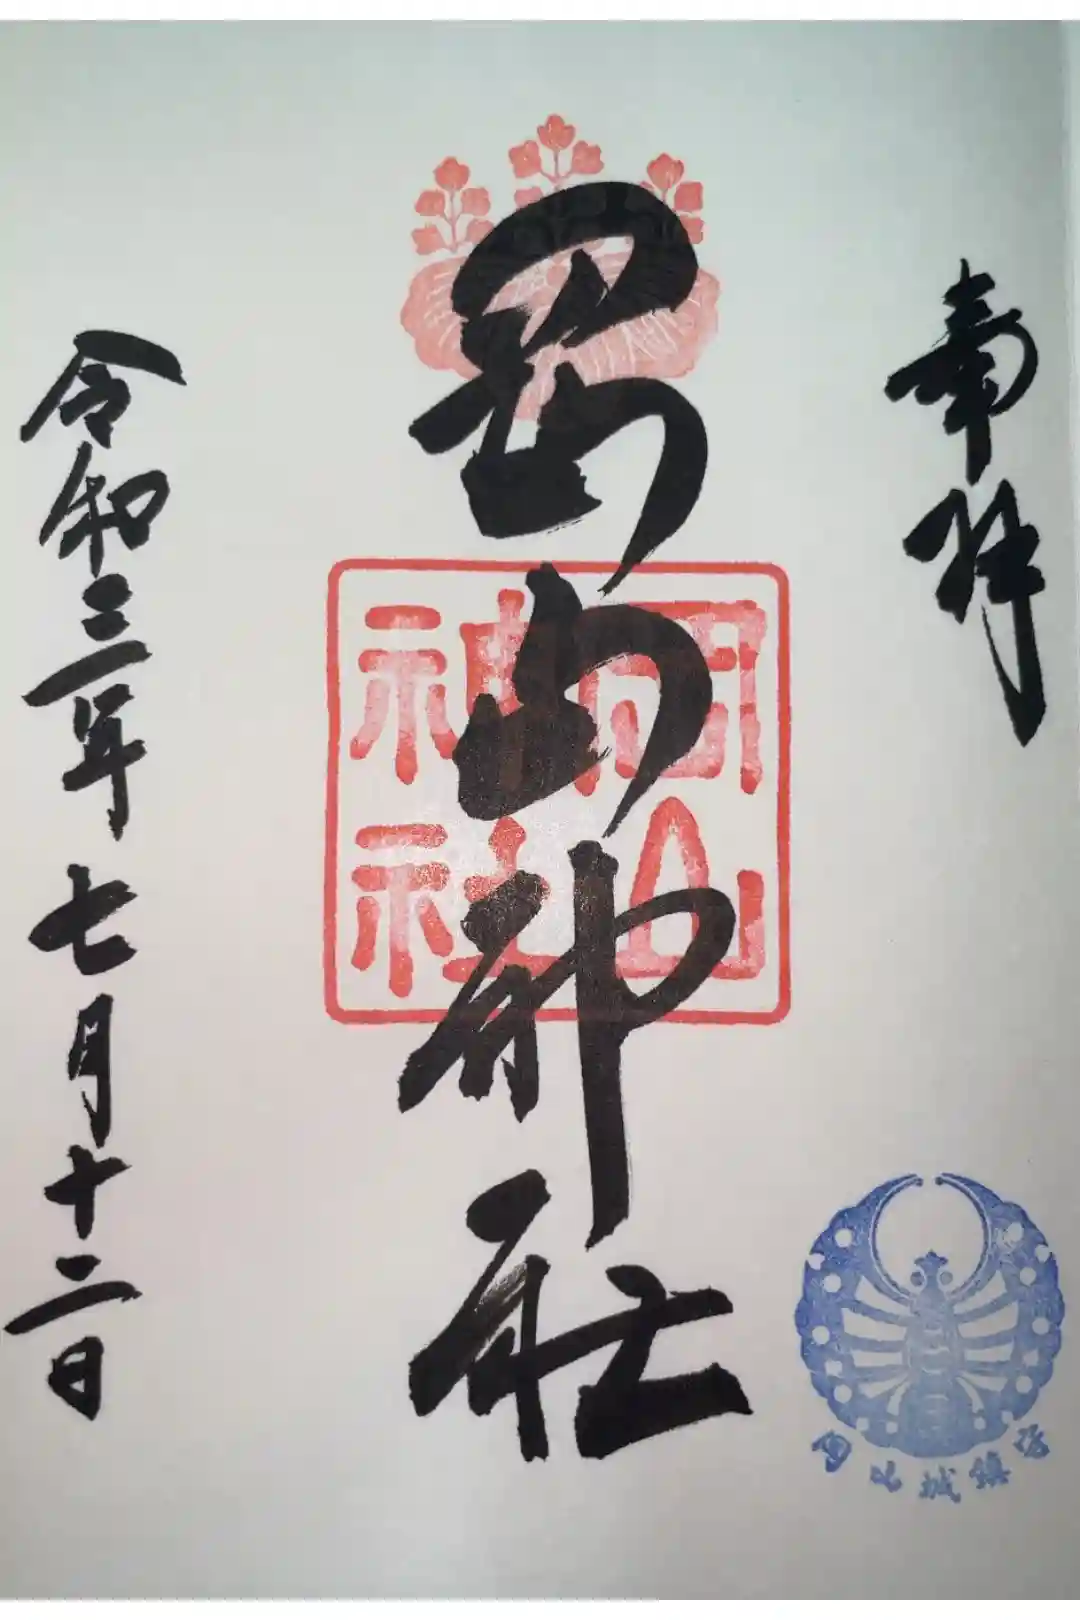 奉拝
岡山神社
岡山神社
令和三年七月十二日
城鎮守